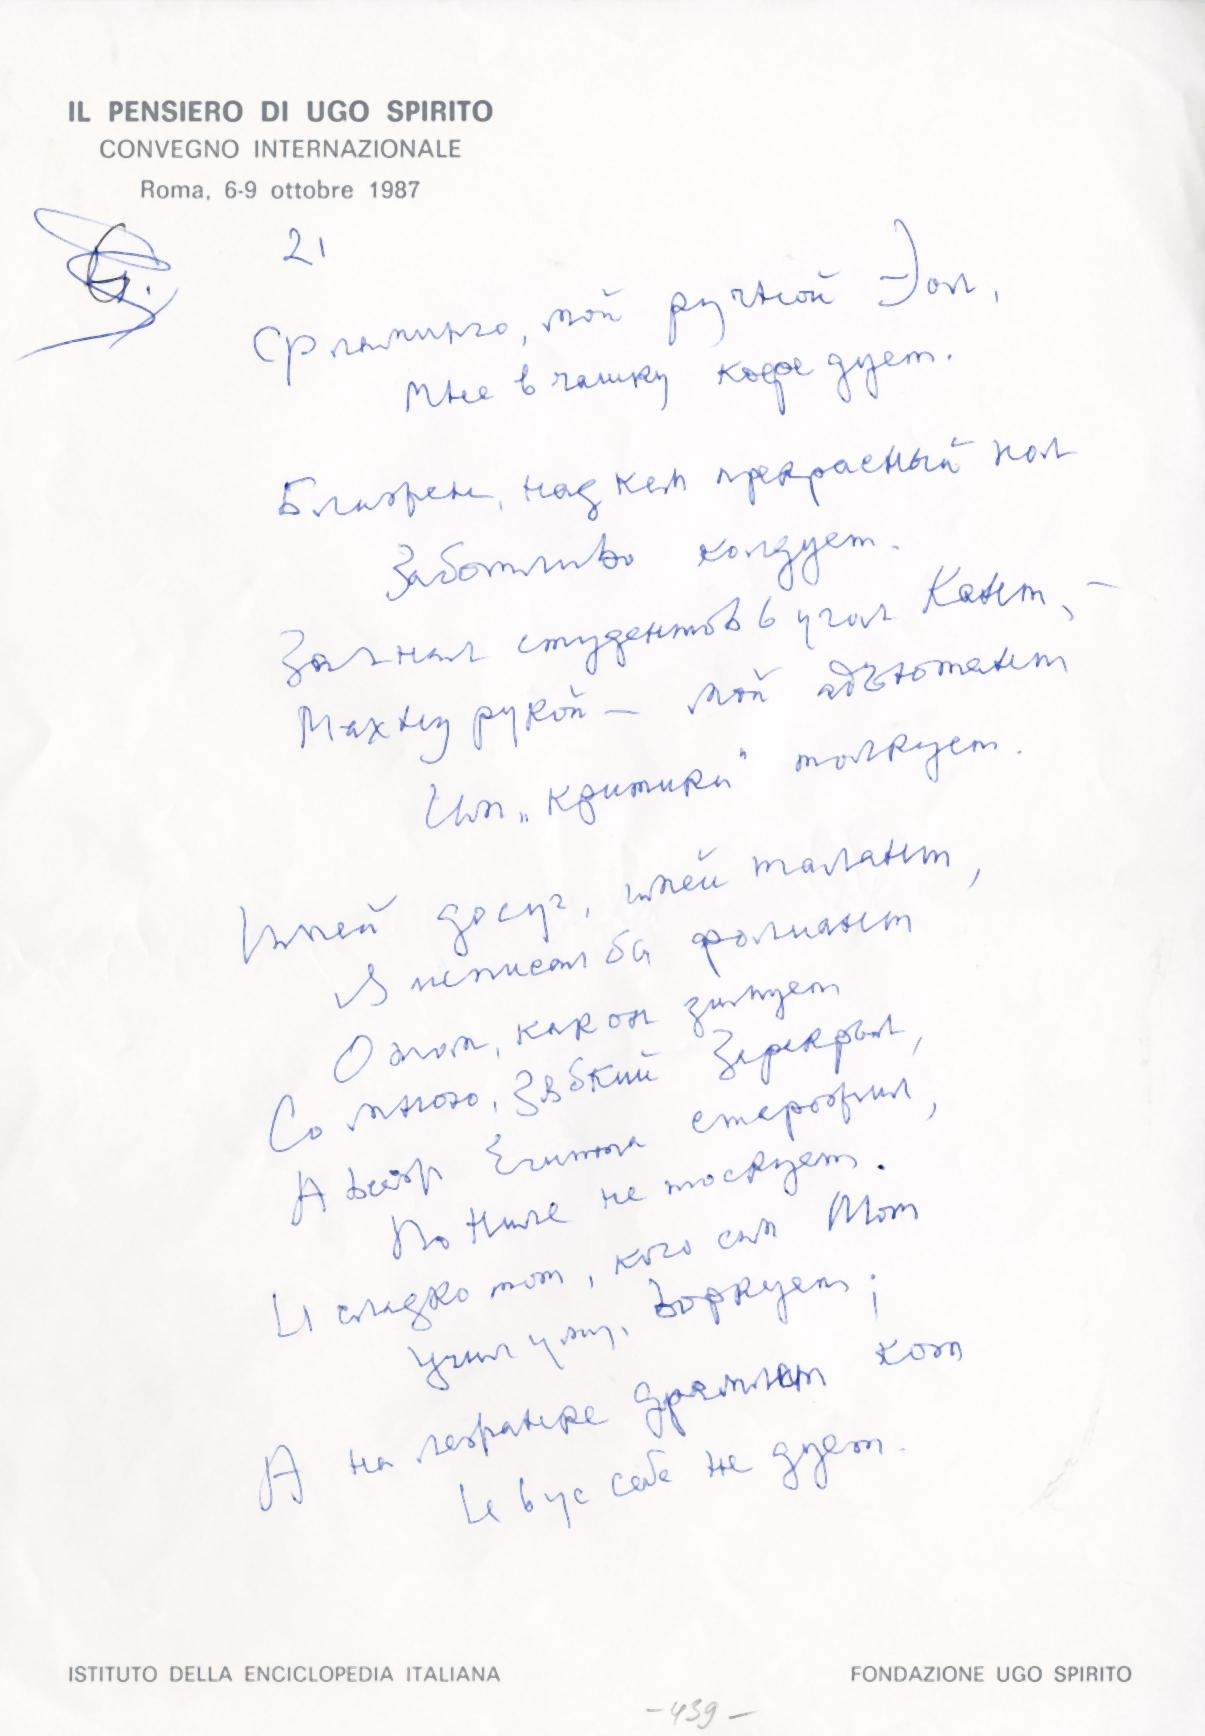 IL PENSIERO DI UGO SPIRITO
CONVEGNO INTERNAZIONALE
Roma, 6-9 ottobre 1987
21
Фламинго, мой ручной Эол,
Мне в чашку кофе дует.
Блажен, над кем прекрасный пол
Заботливо колдует.
Загнал студентов в угол Кант, –
Махну рукой – мой адъютант
Им „критики" толкует.
Имей досуг, имей талант,
Я исписал бы фолиант
О том, как он зимует
Со мною, зябкий
А всё ж Египта старожил,
По Ниле не тоскует.
И сладко тот, кого сам Тот
Учил уму, воркует;
А на лежанке дремлет кот
И в ус себе не дует.
ISTITUTO DELLA ENCICLOPEDIA ITALIANA
FONDAZIONE UGO SPIRITO
-439-